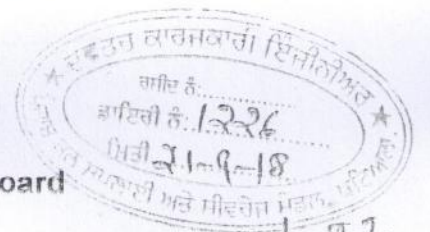 ਦਫਤਰ ਕਾਰਜਕਾਰੀ ਇੰਜੀਨੀਅਰ
ਰਸੀਦ ਨੰ:
ਡਾਇਰੀ ਨੰ: 1226
ਮਿਤੀ 21-9-18
ਸਪਲਾਈ ਅਤੇ ਸੀਵਰੇਜ ਮੰਡਲ,
oard